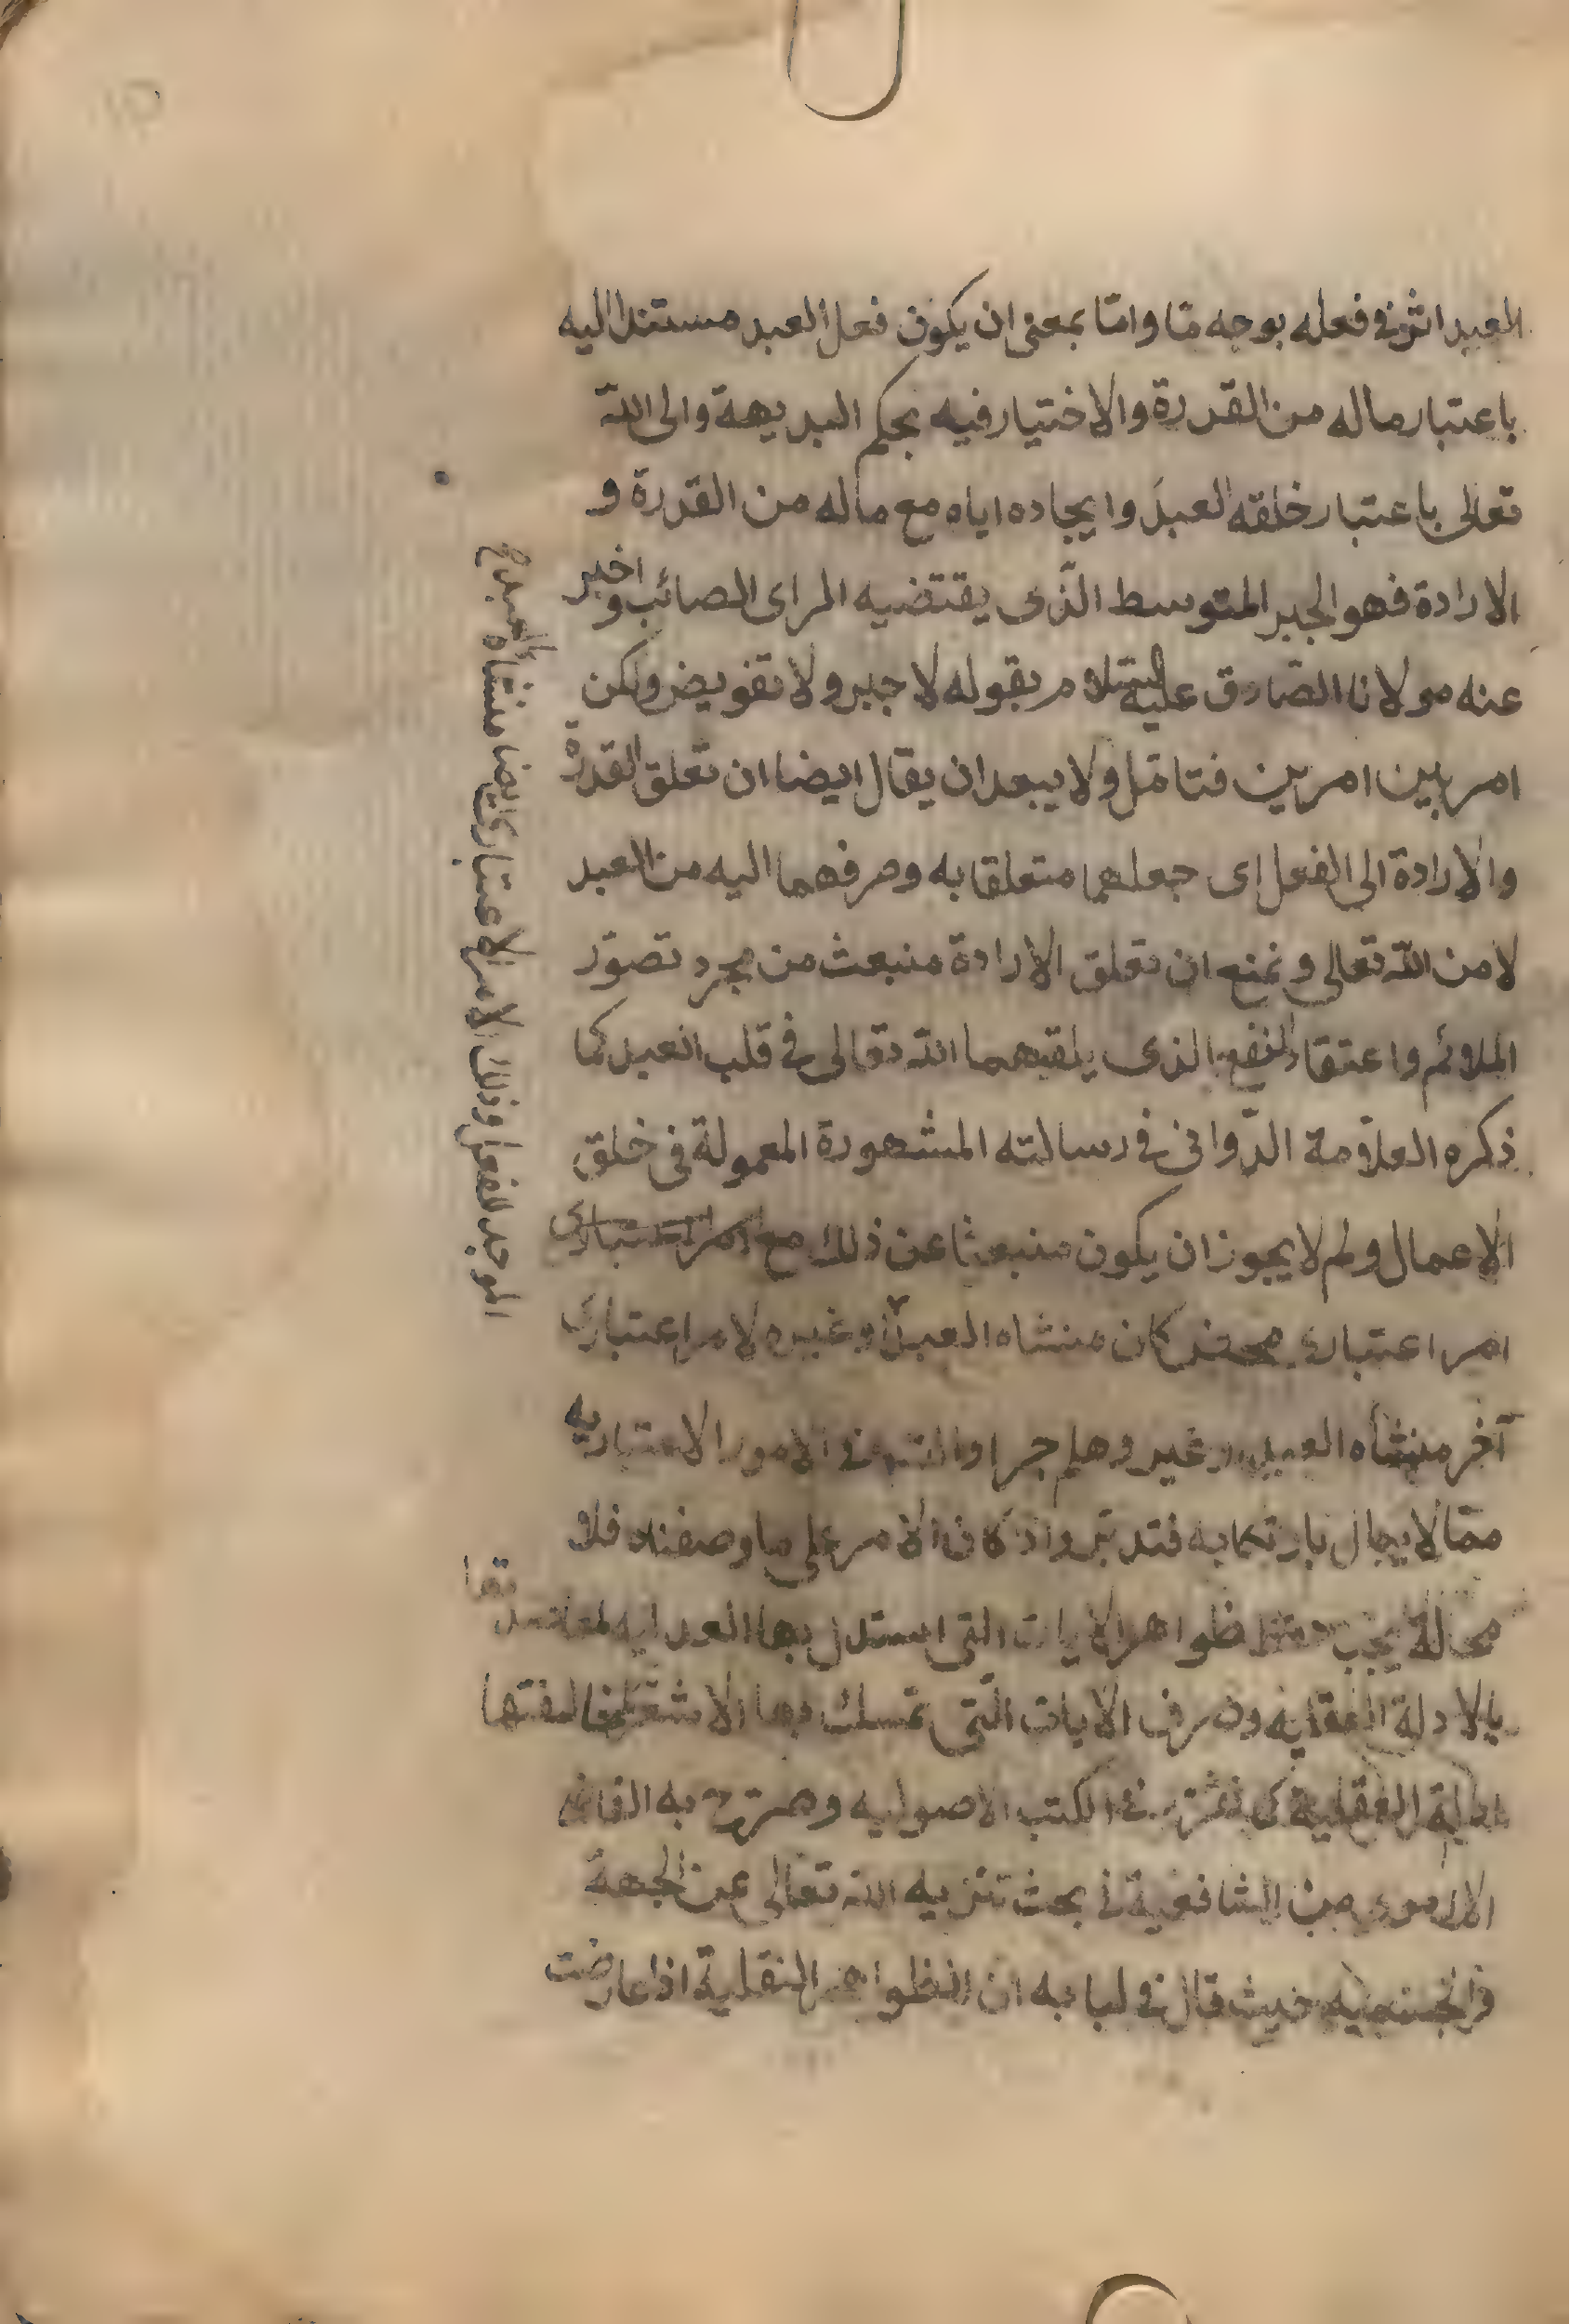 العبد اثر فى فعله بوجه مّا وامّا بمعنى ان يكون فعل العبد مستندا اليه
باعتبار ماله من القدرة والاختيار فيه بحكم البديهة والى الله
تعالى باعتبار خلقه العبدَ وايجاده اياه مع ماله من القدرة و
الارادة فهو الجبر المتوسط الذّى يقتضيه الراى الصائب واخبر
عنه مولانا الصّادق عليه السّلام بقوله لا جبر ولا تفويض ولكن
امر بين امرين فتامّل ولا يبعد ان يقال ايضا ان تعلق القدرة
والارادة الى الفعل اى جعلهما متعلقا به وصرفهما اليه من العبد
لا من الله تعالى ونمنع ان تعلق الارادة منبعث من مجرد تصوّر
الملائم واعتقاد النفع الذى يلقيهما الله تعالى فى قلب العبد كما
ذكره العلاّمة الدّوانى فى رسالته المشهورة المعمولة فى خلق
الاعمال ولم لا يجوز ان يكون منبعثا عن ذلك مع امر اعتبارى
امر اعتبارى محض كان منشاه العبد او غيره لامر اعتبارى
آخر منشاه العبد او غير وهلم جرا والتسه فى الامور الاعتباريه
ممّا لا يبال بارتكابه فتدبّر واذ كان الامر على ما وصفناه فلا
محالة يجب حفظ ظواهر الايات التى استدل بها العدليه لمعاضدتها
بالادلة العقليه وصرف الايات الّتى تمسك بها الاشعرى لمخالفتها
الادلة العقلية كما تقرّر فى الكتب الاصوليه وصرّح به الفاضل
الارموى من الشافعية فى بحث تنزيه الله تعالى عن الجهة
والجسميه حيث قال فى لبابه ان الظواهر النقلية اذا عارضت
الموجد للفعل وذلك الامر الاعتبارى ايضا منشاه العبد مع